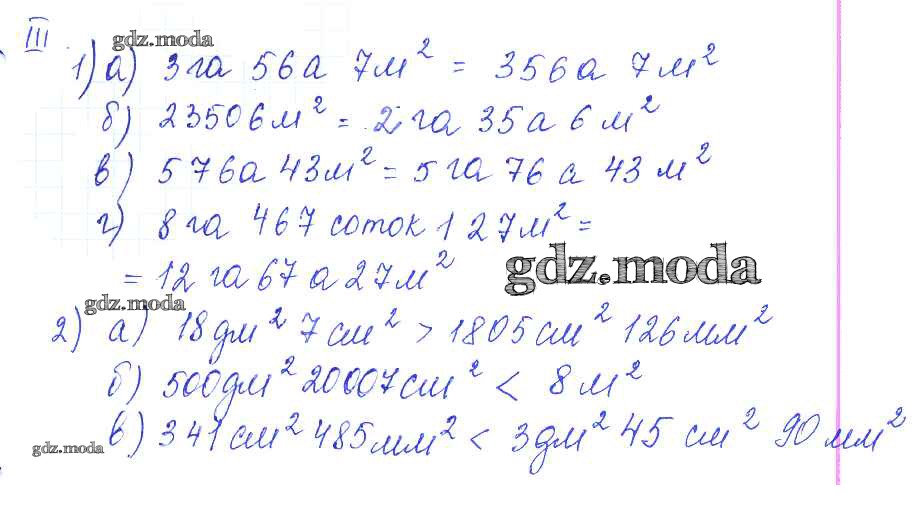 III
gdz.moda
1) а) 3 га 56 а 7 м² = 356 а 7 м²
б) 23506 м² = 2 га 35 а 6 м²
в) 576 а 43 м² = 5 га 76 а 43 м²
г) 8 га 467 соток 127 м² =
= 12 га 67 а 27 м²
gdz.moda
gdz.moda
2) а) 18 дм² 7 см² > 1805 см² 126 мм²
б) 500 дм² 20007 см² < 8 м²
в) 341 см² 485 мм² < 3 дм² 45 см² 90 мм²
gdz.moda